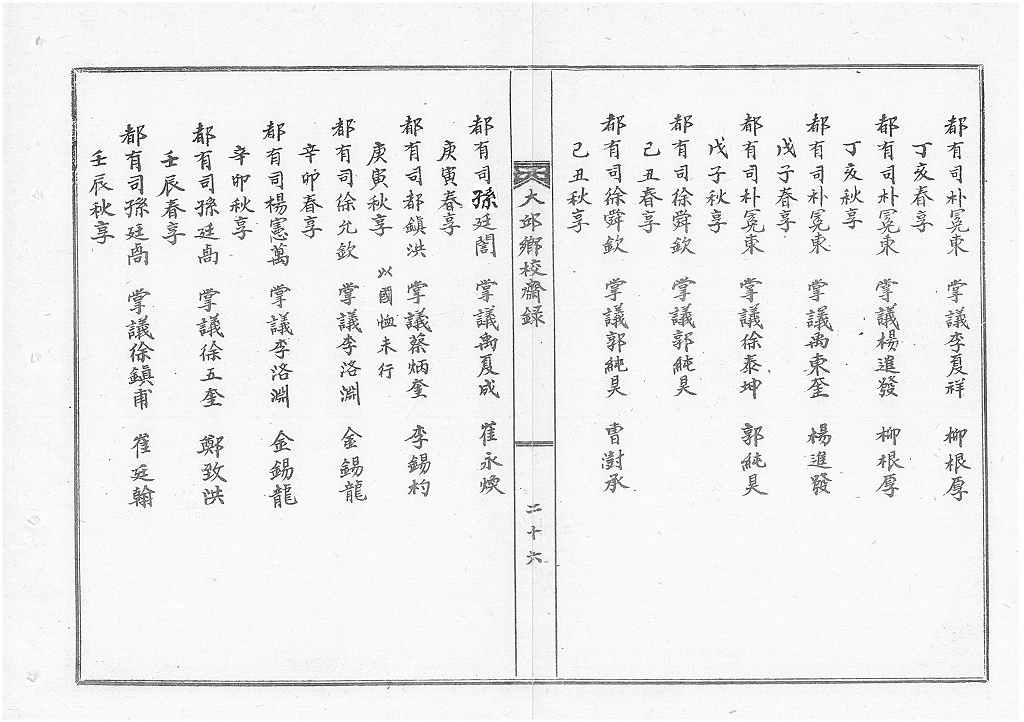 都有司朴冕東 掌議李夏祥 柳根厚
丁亥春享
都有司朴冕東 掌議楊進發 柳根厚
丁亥秋享
都有司朴冕東 掌議禹東奎 楊進發
戊子春享
都有司朴冕東 掌議徐泰坤 郭純昊
戊子秋享
都有司徐舜欽 掌議郭純昊
己丑春享
都有司徐舜欽 掌議郭純昊 曺澍承
己丑秋享
大邱鄉校齋錄
二十六
都有司孫廷誾 掌議禹夏成 崔永煥
庚寅春享
都有司都鎮洪 掌議蔡炳奎 李錫杓
庚寅秋享 以國恤未行
都有司徐允欽 掌議李洛淵 金錫龍
辛卯春享
都有司楊憲萬 掌議李洛淵 金錫龍
辛卯秋享
都有司孫廷卨 掌議徐五奎 鄭致洪
壬辰春享
都有司孫廷卨 掌議徐鎮甫 崔廷翰
壬辰秋享